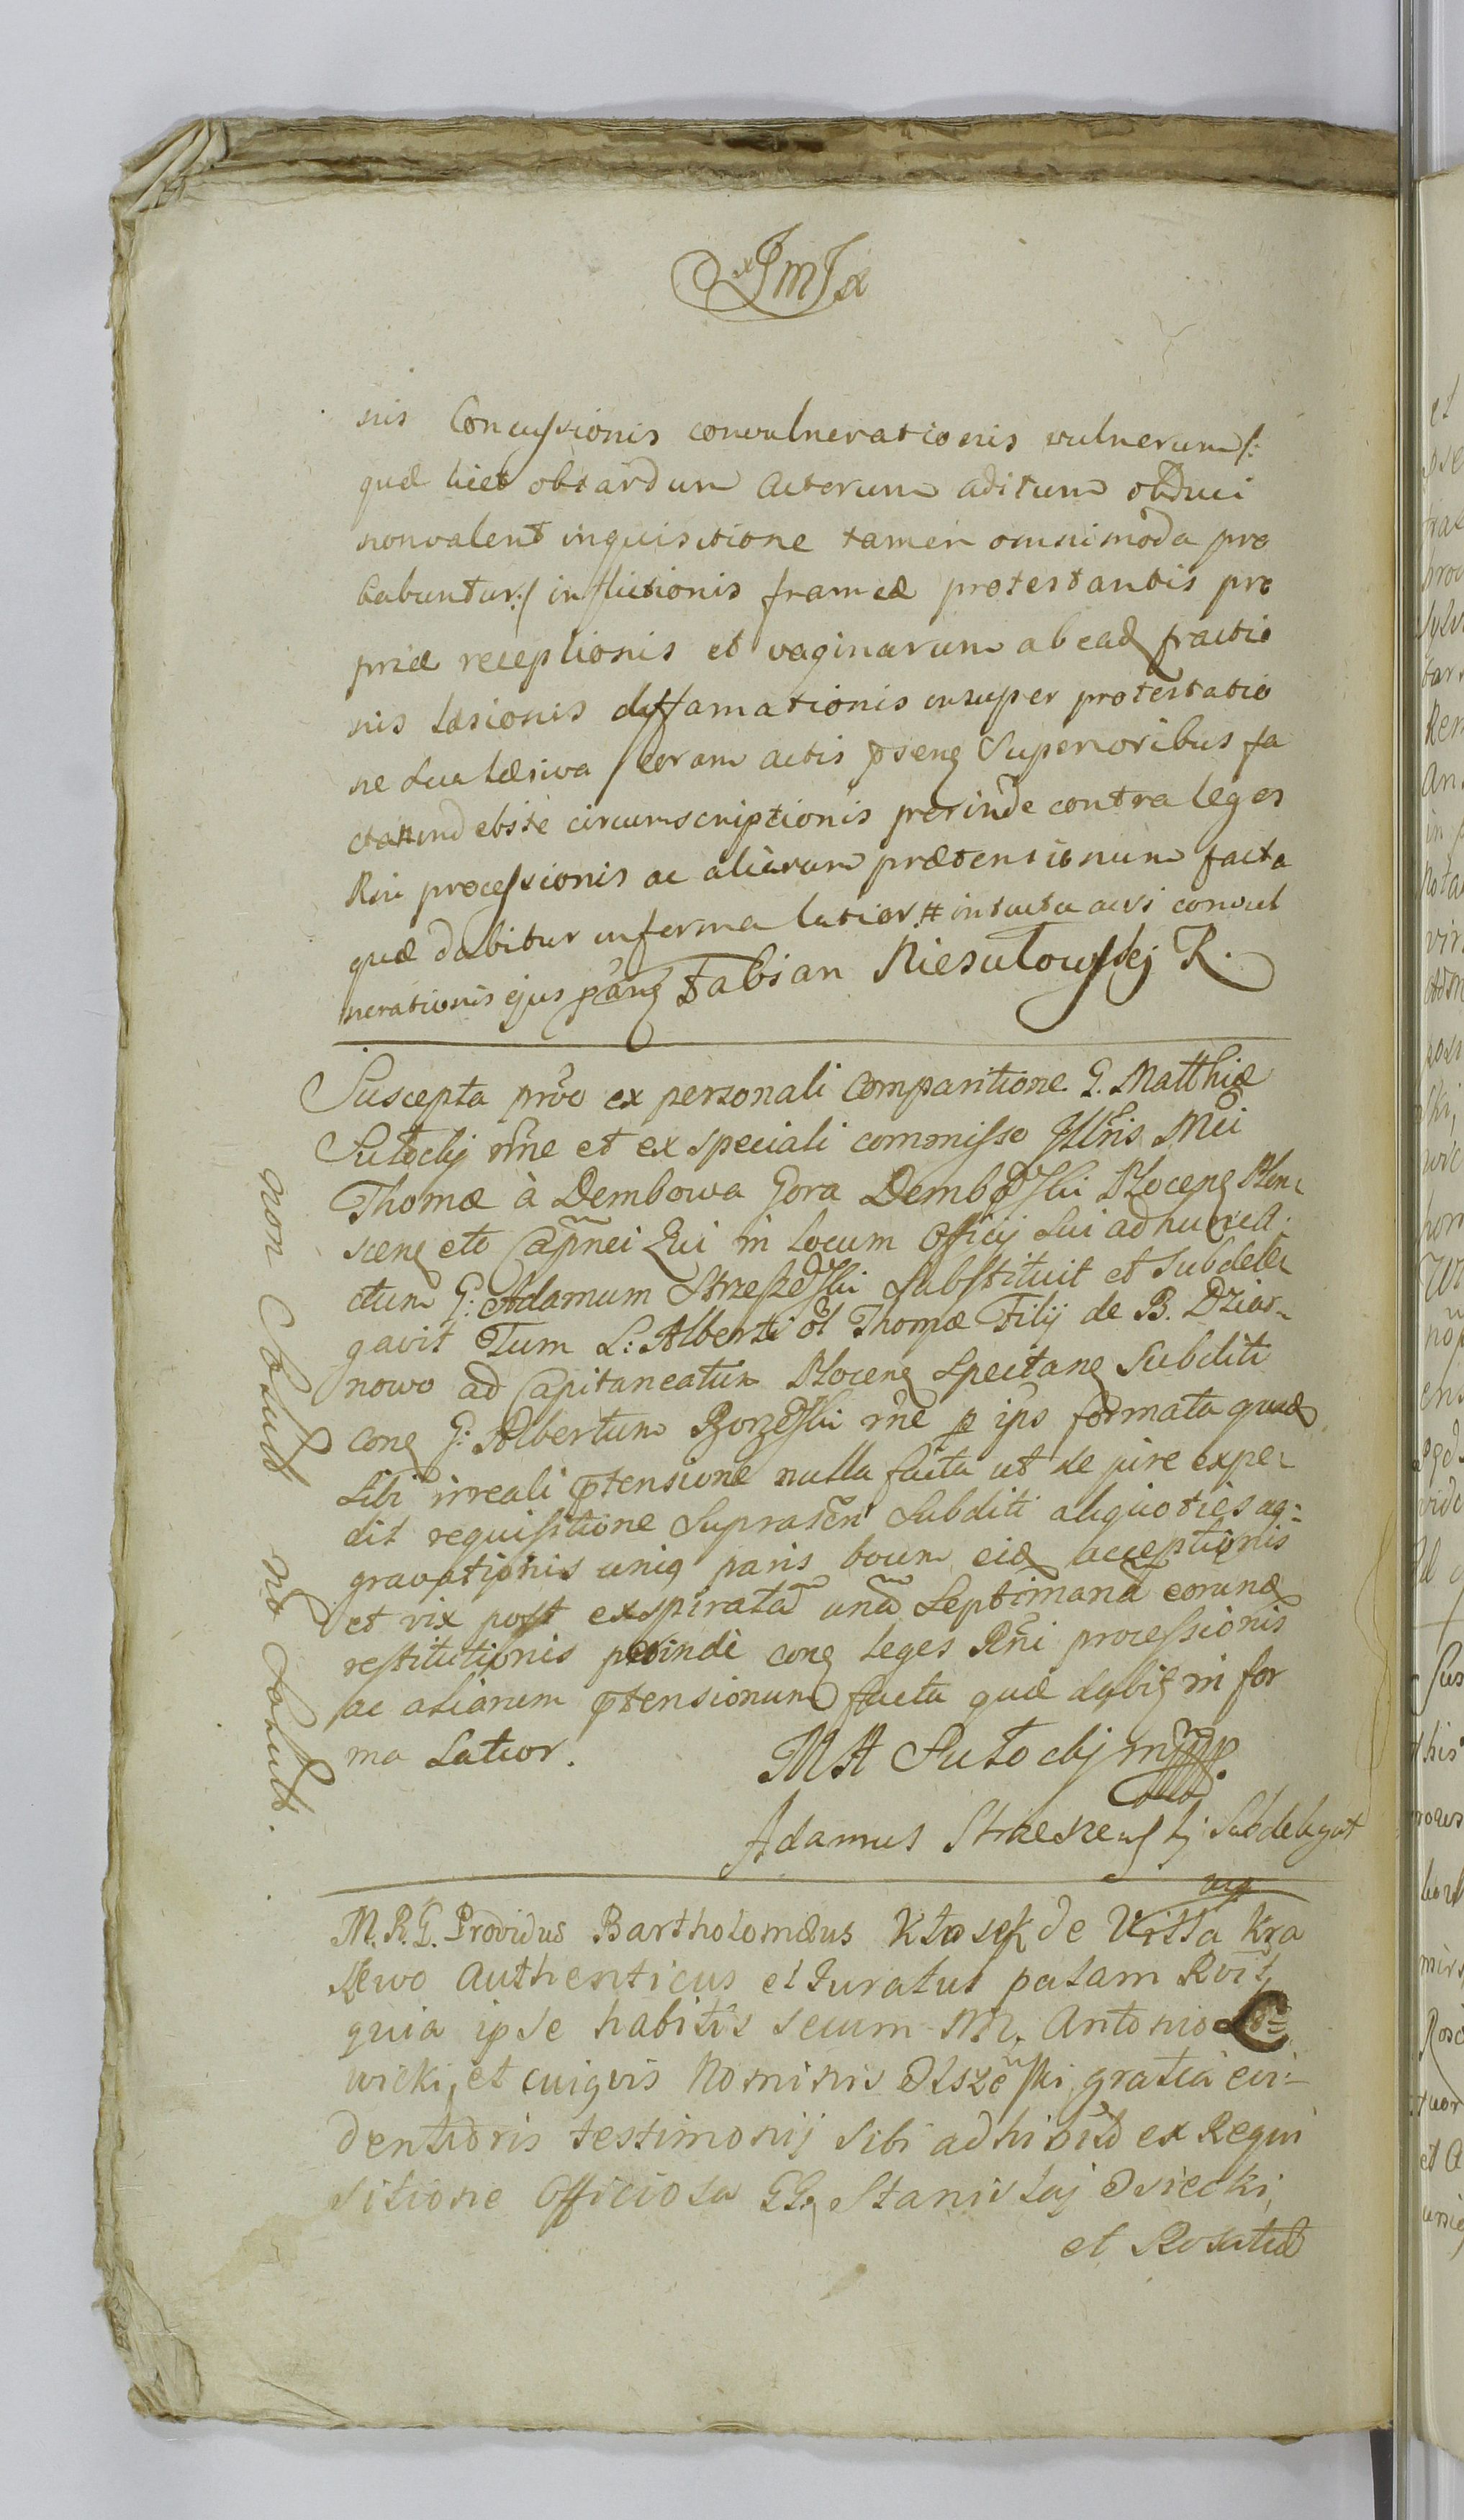 nis Concussionis convulnerationis vulnerum /:
quæ licet ob tardum Actorum aditum obduci
non valent inquisitione tamen omnimoda pro
babuntur :/ inflictionis frameæ protestantis pro
priæ receptionis et vaginarum ab ead fractio
nis læsionis diffamationis insuper protestatio
ne sua læsiva coram actis Superioribus fa
cta circumscriptionis proinde contra leges
Rni processionis ac aliarum prætensionum facta
quæ dabitur in forma latior # intuitu convul
nerationis ejus Fabian
Suscepta ex personali Comparitione G. Matthiæ
et ex speciali commisso Illris Mci
Thomæ à Dembowa Gora Dembowski Plocens
scens etc Capnei Qui in locum Officij sui ad hunc A
ctum G: Adamum substituit et subdele
gavit Tum L: Alberti Thomæ Filij de B. Dziar
nowo ad Capitaneatum Plocens Spectans Subditi
G: Albertum formata quæ
sibi irreali ptensione nulla facta ut de jure expe
dit requisitione suprascri Subditi aliquoties ag=
gravationis uniq paris boum eid acceptionis
et vix post expirata una Septimana eorund
restitutionis proinde leges Rni processionis
ac aliarum ptensionum facta quæ dabit in for
ma latior.
Adamus Subdelegat
M. R. G. Providus Bartholomæus Kłosek de Villa Kra
Authenticus et Juratus palam Rvit,
quia ipse habitis secum M. Antonio
wicki, et cuiqvis Nominis Olszeñski gratia evi=
dentioris testimonij sibi adhibit ex Requi
sitione Officiosa GG. Stanislaj Osiecki,
et Rosalia
non Solut no Solut.